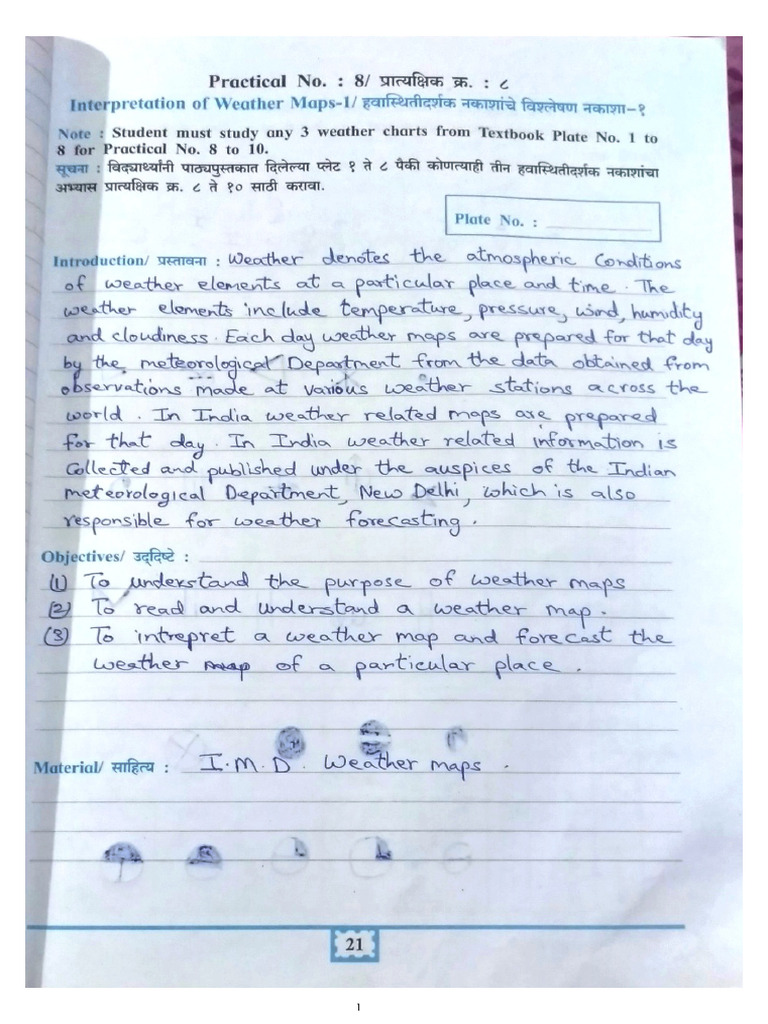 Practical No. : 8/ प्रात्यक्षिक क्र. : ८
Interpretation of Weather Maps-1/ हवास्थितीदर्शक नकाशांचे विश्लेषण नकाशा-१
Note : Student must study any 3 weather charts from Textbook Plate No. 1 to
8 for Practical No. 8 to 10.
सूचना : विद्यार्थ्यांनी पाठ्यपुस्तकात दिलेल्या प्लेट १ ते ८ पैकी कोणत्याही तीन हवास्थितीदर्शक नकाशांचा
अभ्यास प्रात्यक्षिक क्र. ८ ते १० साठी करावा.
Plate No. :
Introduction/ प्रस्तावना : Weather denotes the atmospheric Conditions
of weather elements at a particular place and time. The
weather elements include temperature, pressure, wind, humidity
and cloudiness. Each day weather maps are prepared for that day
by the meteorological Department from the data obtained from
observations made at various weather stations across the
world. In India weather related maps are prepared
for that day. In India weather related information is
Collected and published under the auspices of the Indian
meteorological Department, New Delhi, which is also
responsible for weather forecasting.
Objectives/ उद्दिष्टे :
(1) To understand the purpose of weather maps
(2) To read and understand a weather map.
(3) To intrepret a weather map and forecast the
weather map of a particular place.
Material/ साहित्य : I.M.D. Weather maps.
21
1